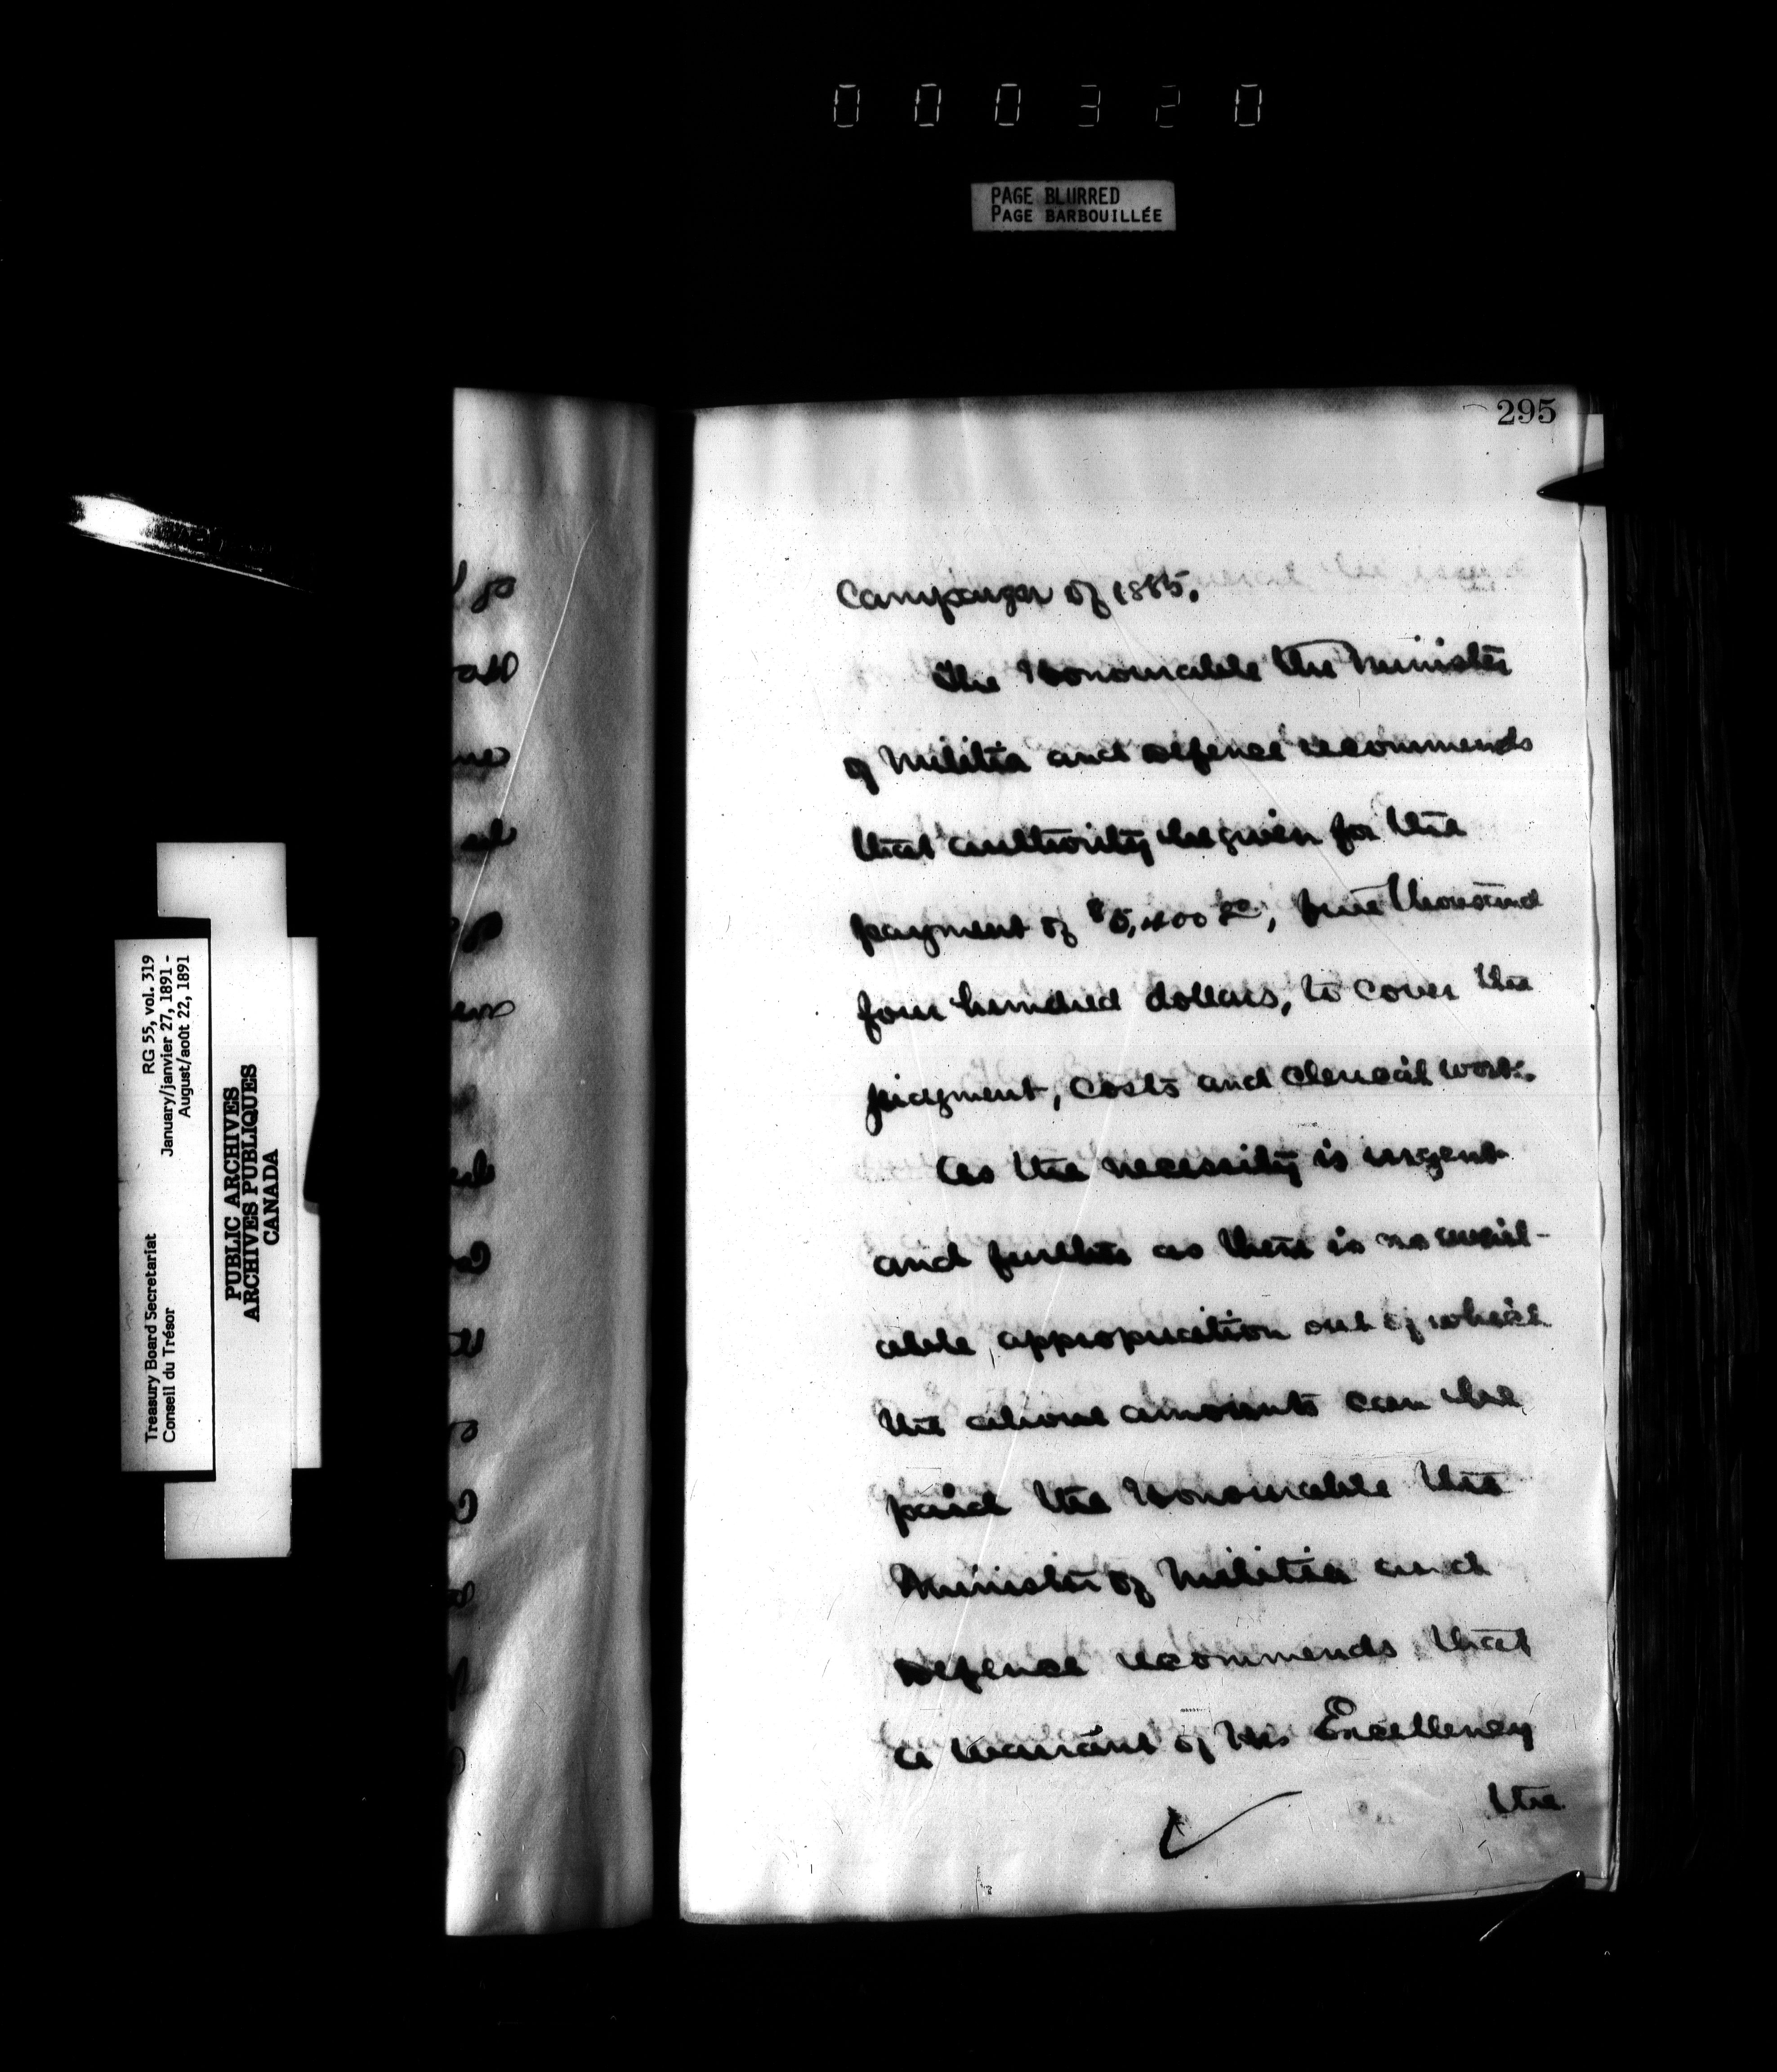 000320
PAGE BLURRED
PAGE BARBOUILLÉE
295
Campaign of 1885.
The Honourable the Minister
of Militia and Defence recommends
that authority be given for the
payment of $5,400 00, five thousand
four hundred dollars, to cover the
judgment, costs and clerical work.
As the necessity is urgent
and further as there is no avail-
able appropriation out of which
the above amounts can be
paid the Honourable the
Minister of Militia and
Defence recommends that
a warrant of His Excellency
the
Treasury Board Secretariat
Conseil du Trésor
RG 55, vol. 319
January/janvier 27, 1891 -
August/août 22, 1891
PUBLIC ARCHIVES
ARCHIVES PUBLIQUES
CANADA